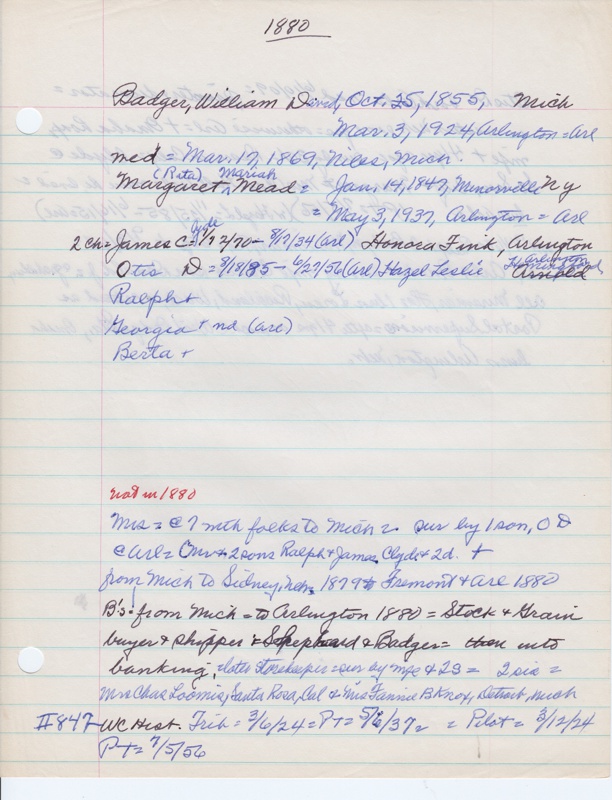 1880
Badger, William David, Oct. 25, 1855, Mich
Mar. 3, 1924, Arlington = Arl
med = Mar. 17, 1869, Niles, Mich.
(Reta) Mariah
Margaret ^ Mead = Jan. 14, 1847, Minorville Ny
= May 3, 1937, Arlington = Arl
2 ch = James C = Clyde 1/22/70 - 8/7/34 (Arl) Honora Fink, Arlington
Otis D = 8/18/85 - 6/27/56 (Arl) Hazel Leslie Arlington
Ralph +
Georgia + nd (Arl)
Berta +
not in 1880
Mrs = @ 7 mth folks to Mich = sur by 1 son, O D
@ Arl = Omr + 2 sons Ralph + James Clyde + 2 d. +
from Mich to Sidney, Neb. 1879 + Fremont + Arl 1880
B's: from Mich = to Arlington 1880 = Stock + Grain
buyer + shipper = Shephard + Badger = then into
banking, = late storekeeper = sur by wfe + 2 S = 2 sis =
Mrs Chas Loomis, Santa Rosa, Cal + Mrs Fannie B Knox, Detroit, Mich
#847 - WC Hist. Trib = 3/6/24 = PT = 5/6/37 = = Pilot = 3/12/24
PT = 7/5/56